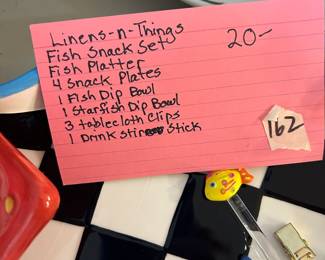 Linens-n-Things
Fish Snack Set 20-
Fish Platter
4 Snack Plates
1 Fish Dip Bowl
1 Starfish Dip Bowl
3 tablecloth Clips
1 Drink Stir Stick
162